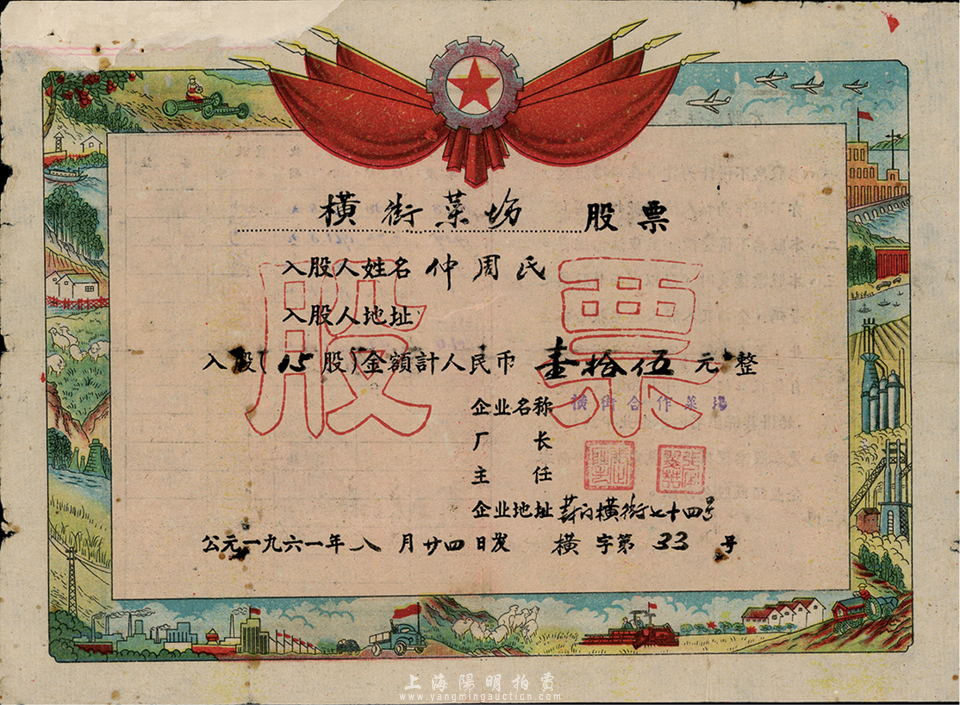 橫街菜场 股票
入股人姓名 仲周氏
入股人地址
入股(15股)金額計人民币 壹拾伍 元 整
股票
企业名称 橫街合作菜场
厂 长
主 任
企业地址 葑门橫街七十四号
公元一九六一年 八 月 廿四 日发 橫 字第 33 号
上海陽明拍賣
www.yangmingauction.com